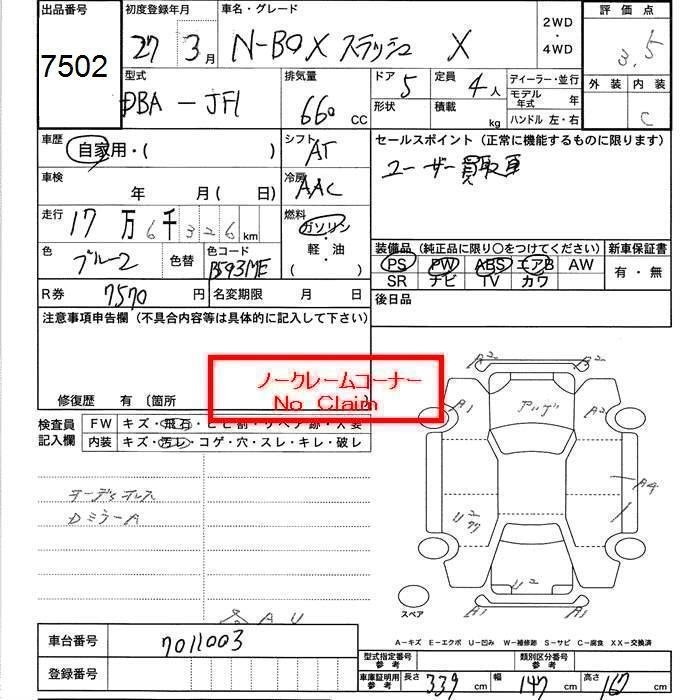 出品番号 初度登録年月 車名・グレード 2WD ・ 4WD 評価点
7502 27 3月 N-BOX スラッシュ X 3.5
型式 排気量 ドア 5 定員 4人 ディーラー・並行 外装 内装
DBA-JF1 660 CC 形状 積載 kg モデル年式 年 C
ハンドル 左・右
車歴 シフト セールスポイント(正常に機能するものに限ります)
自家用・( ) AT ユーザー買取車
車検 年 月(日) 冷房 AAC
走行 17万6千326km 燃料 ガソリン・軽油( )
色 ブルー2 色替 色コード B593ME
装備品(純正品に限り〇をつけてください) 新車保証書
PS PW ABS エアB AW 有・無
SR ナビ TV カワ
R券 7570円 名変期限 月 日 後日品
注意事項申告欄(不具合内容等は具体的に記入して下さい)
ノークレームコーナー
No Claim
修復歴 有 〔箇所
検査員記入欄 FW キズ・飛石・ヒビ割・リペア跡・X要
内装 キズ・汚レ・コゲ・穴・スレ・キレ・破レ
オーディオレス
DミラーA
A2 A2
A1 アゲ A2
A4
U2
U2
A3 A3
スペア
A-キズ E-エクボ U-凹み W-補修跡 S-サビ C-腐食 XX-交換済
車台番号 7011003
登録番号
型式指定番号 参考 類別区分番号 参考
車庫証明用 参考 長さ 339cm 幅 147cm 高さ 167cm